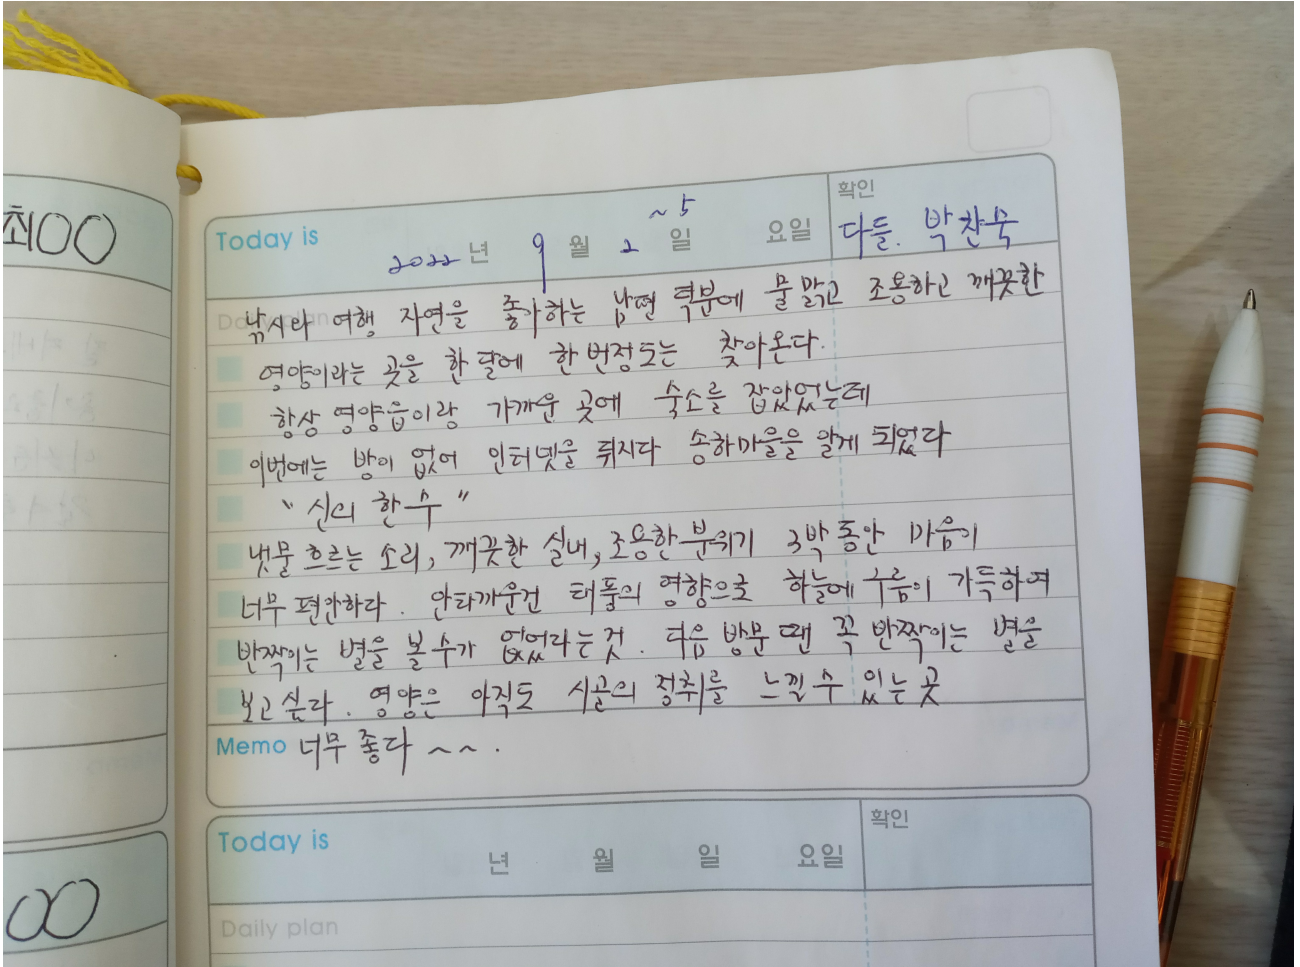 최○○
Today is 2022 년 9 월 2 ~5 일 요일
확인
다들. 박찬숙
Daily plan
낚시와 여행 자연을 좋아하는 남편 덕분에 물 맑고 조용하고 깨끗한
영양이라는 곳을 한 달에 한 번정도는 찾아온다.
항상 영양읍이랑 가까운 곳에 숙소를 잡았었는데
이번에는 방이 없어 인터넷을 뒤지다 송하마을을 알게 되었다
"신의 한 수"
냇물 흐르는 소리, 깨끗한 실내, 조용한 분위기 3박 동안 마음이
너무 편안하다. 안타까운건 태풍의 영향으로 하늘에 구름이 가득하여
반짝이는 별을 볼 수가 없었라는 것. 다음 방문 땐 꼭 반짝이는 별을
보고 싶다. 영양은 아직도 시골의 정취를 느낄 수 있는 곳
Memo 너무 좋다 ~~.
○○
Today is 년 월 일 요일
확인
Daily plan